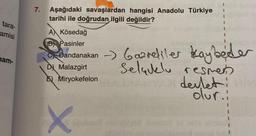 7. Aşağıdaki savaşlardan hangisi Anadolu Türkiye
tarihi ile doğrudan ilgili değildir?
tara-
amisi
A) Kösedağ
B) Pasinler
C) Dandanakan → Gazneliler kaybeder
D) Malazgirt Selçuklu resmen
E) Miryokefelon devlet
olur.